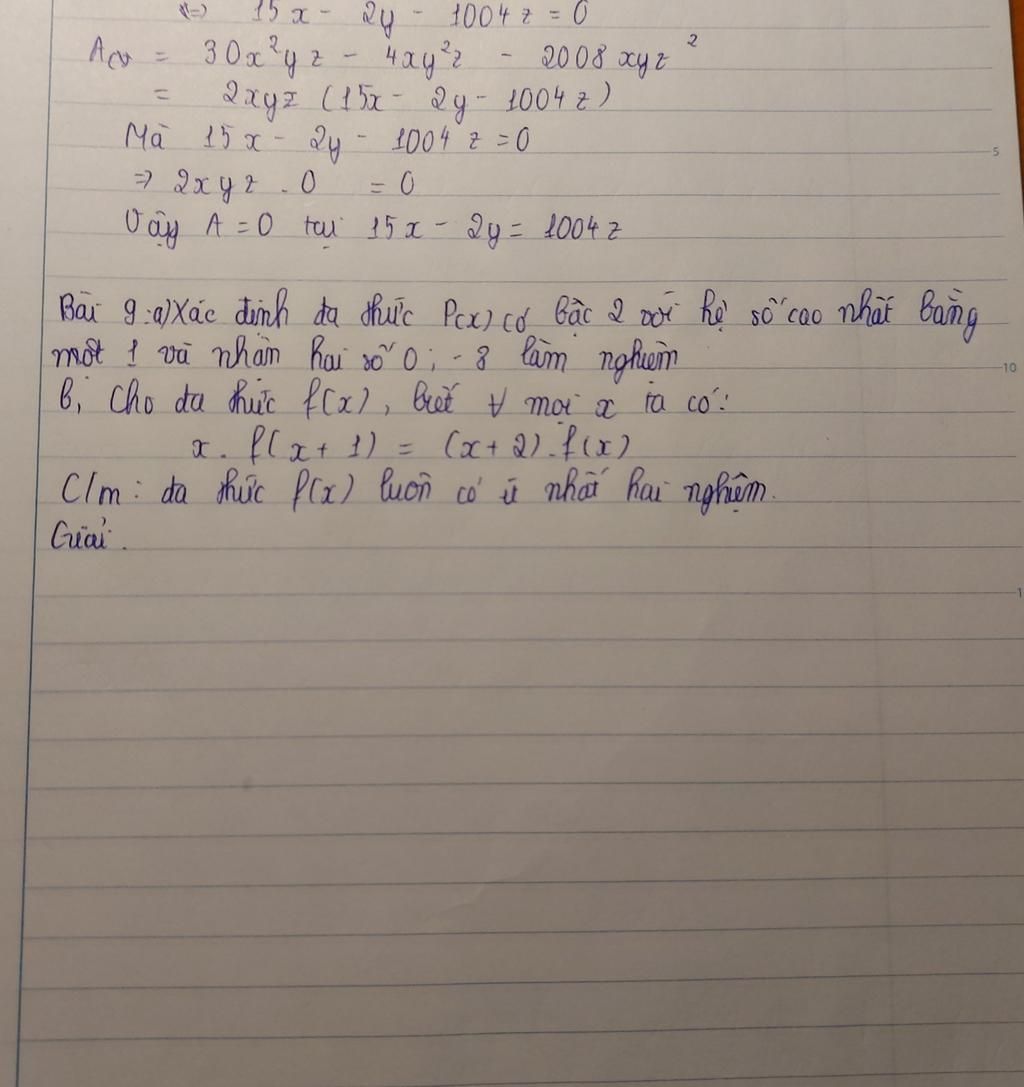 <=> 15x - 2y - 1004z = 0
A(x) = 30x²yz - 4xy²z - 2008xyz²
= 2xyz (15x - 2y - 1004z)
Mà 15x - 2y - 1004z = 0
=> 2xyz . 0 = 0
Vậy A = 0 tại 15x - 2y = 1004z
Bài 9: a) Xác định đa thức P(x) có bậc 2 với hệ số cao nhất bằng
một 1 và nhận hai số 0; -8 làm nghiệm
b, Cho đa thức f(x), biết ∀ mọi x ta có:
x. f(x + 1) = (x + 2). f(x)
C/m: đa thức f(x) luôn có ít nhất hai nghiệm.
Giải.
5
10
1